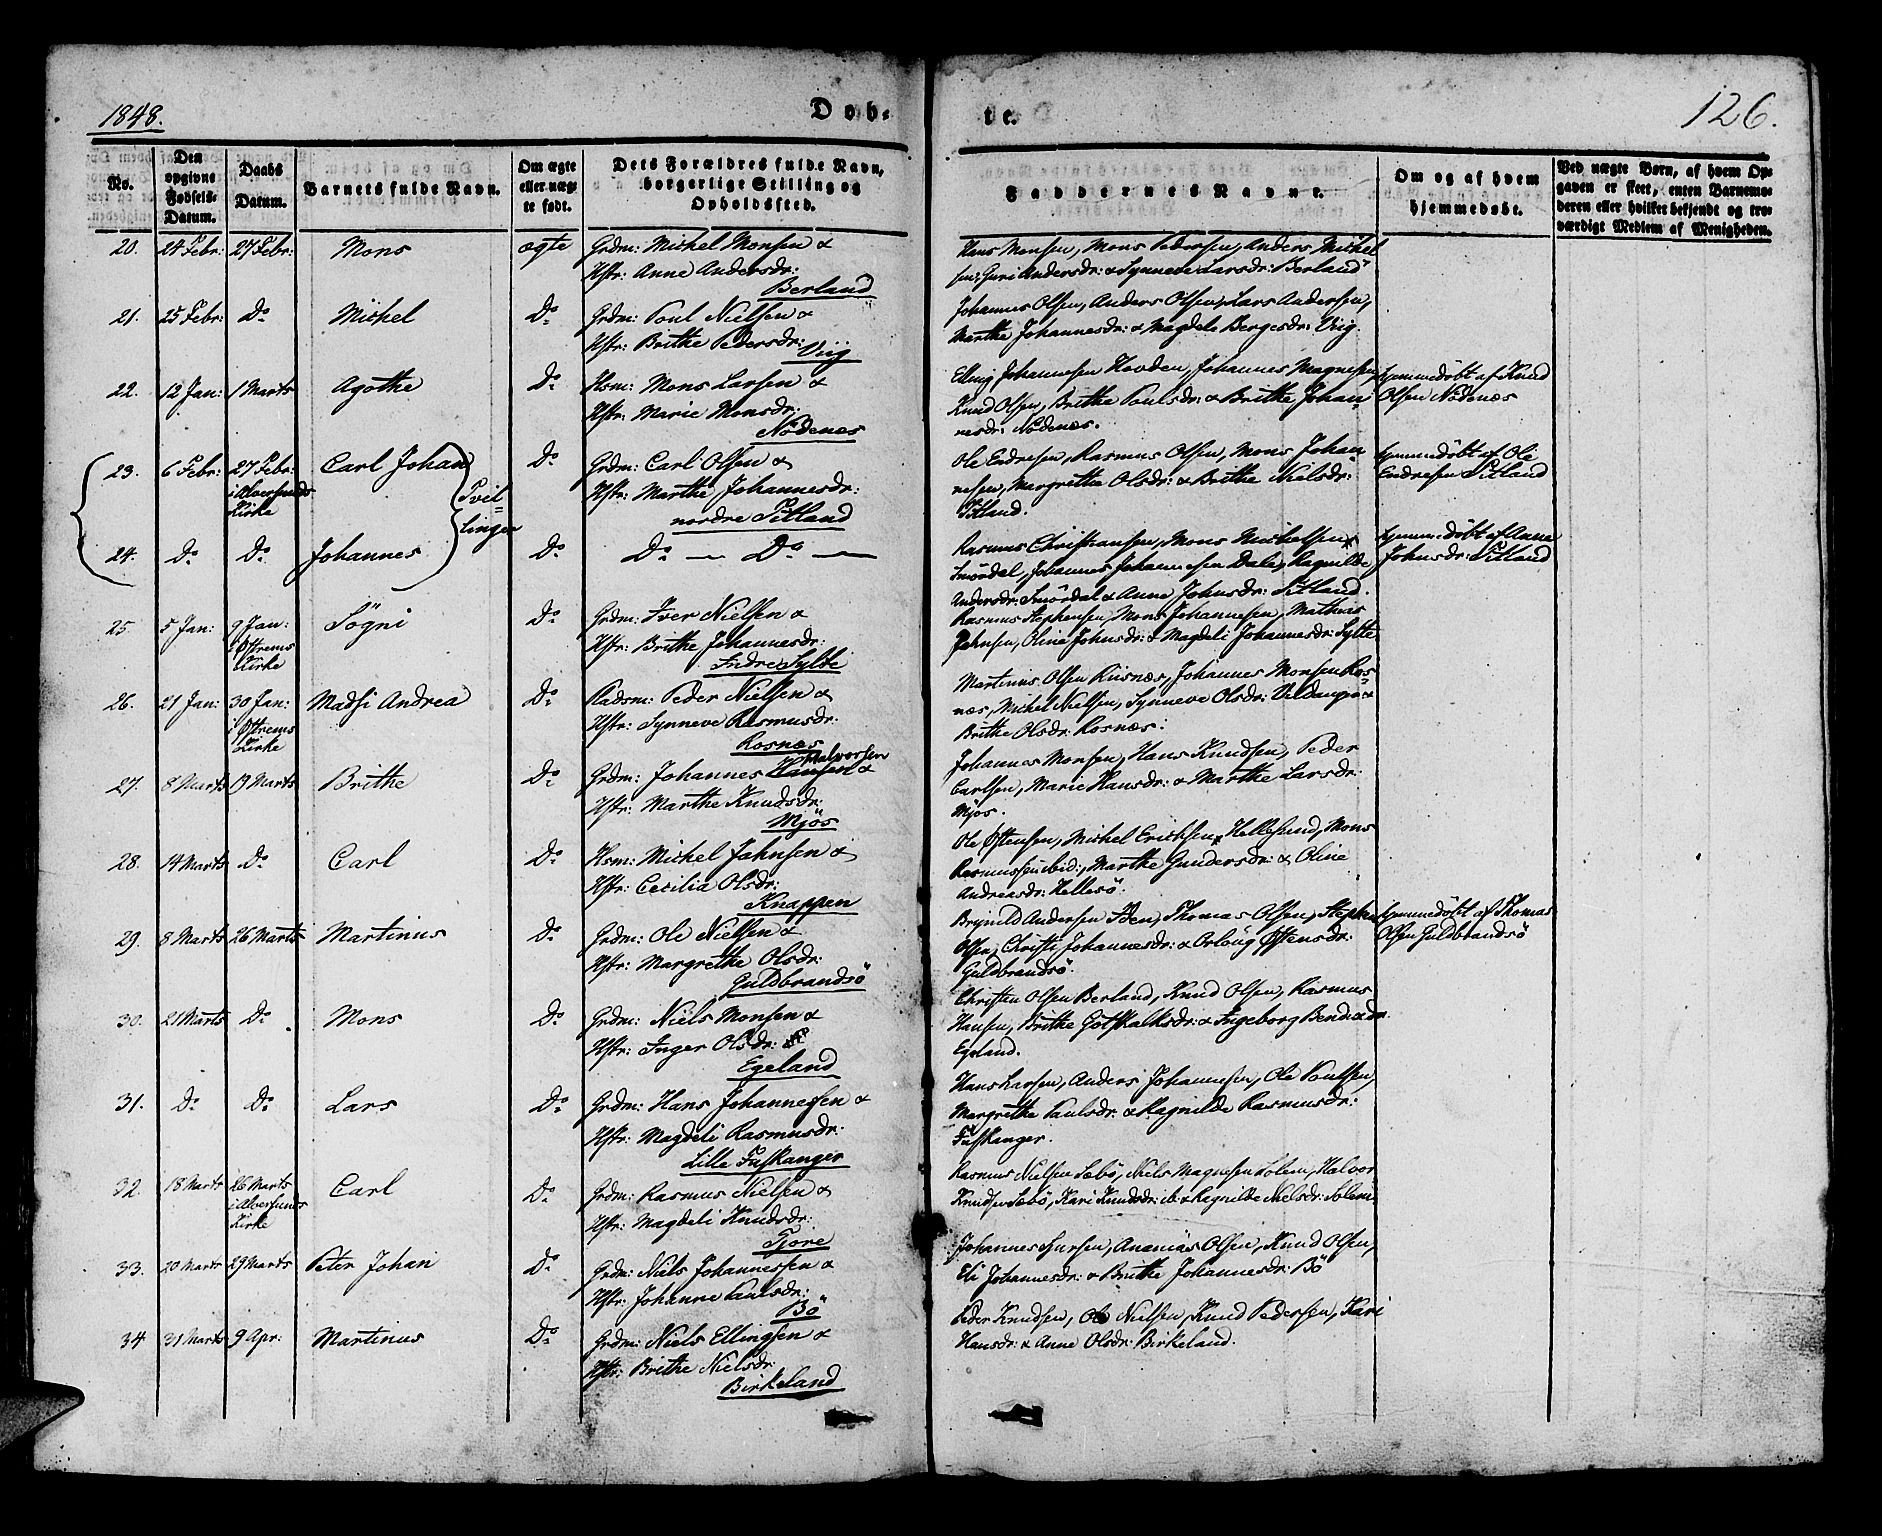 1848.
Døb-
te.
126.
No.
Den opgivne Fødsels-Datum.
Daabs Datum.
Barnets fulde Navn.
Om ægte eller uægte født.
Dets Forældres fulde Navn, borgerlige Stilling og Opholdssted.
Faddernes Navne.
Om og af hvem hjemmedøbt.
Ved uægte Børn, af hvem Opgaven er skeet, enten Barnemoderen eller hvilket bekjendt og troværdigt Medlem af Menigheden.
20. 24 Febr: 27 Febr: Mons ægte Grdm: Michel Monsen &
Hstr: Anne Andersdr:
Berland
Hans Monsen, Mons Pedersen, Anders Michel
sen, Guri Andersdr: & Synneve Larsdr: Berland
21. 25 Febr: Do Michel Do Grdm: Poul Nielsen &
Hstr: Brithe Pedersdr:
Viig
Johannes Olsen, Anders Olsen, Lars Andersen,
Marthe Johannesdr: & Magdele Bergesdr: Viig.
22. 12 Jan: 1 Marts Agothe Do Hsm: Mons Larsen &
Hstr: Marie Monsdr:
Nödenæs
Elling Johannesen Hovden, Johannes Magnesen,
Knud Olsen, Brithe Poulsdr: & Brithe Johan
nesdr: Nödenæs.
hjemmedöbt af Knud
Olsen Nödenæs
23. 6 Febr: 27 Febr: i Alversunds Kirke
Carl Johan
Tvil
linger
Do Grdm: Carl Olsen &
Hstr: Marthe Johannesdr:
nordre Titland
Ole Endresen, Rasmus Olsen, Mons Johan
nesen, Margrethe Olsdr: & Brithe Nielsdr:
Titland.
hjemmedöbt af Ole
Endresen Titland
24. Do Do Johannes Do Do — Do —
Rasmus Christiansen, Mons Michelsen
Smördal, Johannes Johannesen Dale, Ragnilde
Andersdr: Smördal & Anne Johnsdr: Titland.
hjemmedöbt af Anne
Johnsdr: Titland
25. 5 Jan: 9 Jan: i Østrems Kirke
Sögni Do Grdm: Iver Nielsen &
Hstr: Brithe Johannesdr:
Indre Sylte
Rasmus Stephensen, Mons Johannesen, Mathias
Johnsen, Oline Johnsdr: & Magdeli Johannesdr: Sylte
26. 21 Jan: 30 Jan: i Østrems Kirke
Madsi Andrea Do Radsm: Peder Nielsen &
Hstr: Synneve Rasmusdr:
Rosnæs
Martinus Olsen Riisnæs, Johannes Monsen Ros
næs, Michel Nielsen, Synneve Olsdr: &
Brithe Olsdr: Rosnæs:
27. 8 Marts 19 Marts Brithe Do Grdm: Johannes Hansen Halvorsen &
Hstr: Marthe Knudsdr:
Mjös
Johannes Monsen, Hans Knudsen, Peder
Carlsen, Marie Hansdr: & Marthe Larsdr:
Mjös.
28. 14 Marts Do Carl Do Hsm: Michel Johnsen &
Hstr: Cecilia Olsdr:
Knappen
Ole Østensen, Michel Erichsen, Hellesund, Mons
Rasmussen ibid:, Marthe Gundersdr: & Oline
Andreasdr: Hellesö.
29. 8 Marts 26 Marts Martinus Do Grdm: Ole Nielsen &
Hstr: Margrethe Olsdr:
Guldbrandsö
Brynild Andersen Iden, Thomas Olsen, Stephen
Olsen, Christi Johannesdr: & Orlöug Østensdr:
Guldbrandsö.
hjemmedöbt af Thomas
Olsen Guldbrandsö
30. 21 Marts Do Mons Do Grdm: Niels Monsen &
Hstr: Inger Olsdr:
Egeland
Christen Olsen Berland, Knud Olsen, Rasmus
Hansen, Brithe Gotskalksdr: & Ingeborg
Egeland.
31. Do Do Lars Do Grdm: Hans Johannesen &
Hstr: Magdeli Rasmusdr:
Lille Fuskanger
Hans Larsen, Anders Johannesen, Ole Poulsen,
Margrethe Paulsdr: & Ragnilde Rasmusdr:
Fuskanger.
32. 18 Marts 26 Marts i Alversunds Kirke
Carl Do Grdm: Rasmus Nielsen &
Hstr: Magdeli Knudsdr:
Tjore
Rasmus Nielsen Sæbö, Niels Magnesen Solem, Halvor
Knudsen Sæbö, Kari Knudsdr: ib: & Ragnilde Nielsdr: Solem.
33. 20 Marts 29 Marts Peter Johan Do Grdm: Niels Johannessen &
Hstr: Johanne Paulsdr:
Bö
Johannes Iversen, Ananias Olsen, Knud Olsen,
Eli Johannesdr: & Brithe Johannesdr: Bö
34 31 Marts 9 Apr: Martinus Do Grdm: Niels Ellingsen &
Hstr: Brithe Nielsdr:
Birkeland
Peder Knudsen, Ole Nielsen, Knud Pedersen, Kari
Hansdr: & Anne Olsdr: Birkeland.